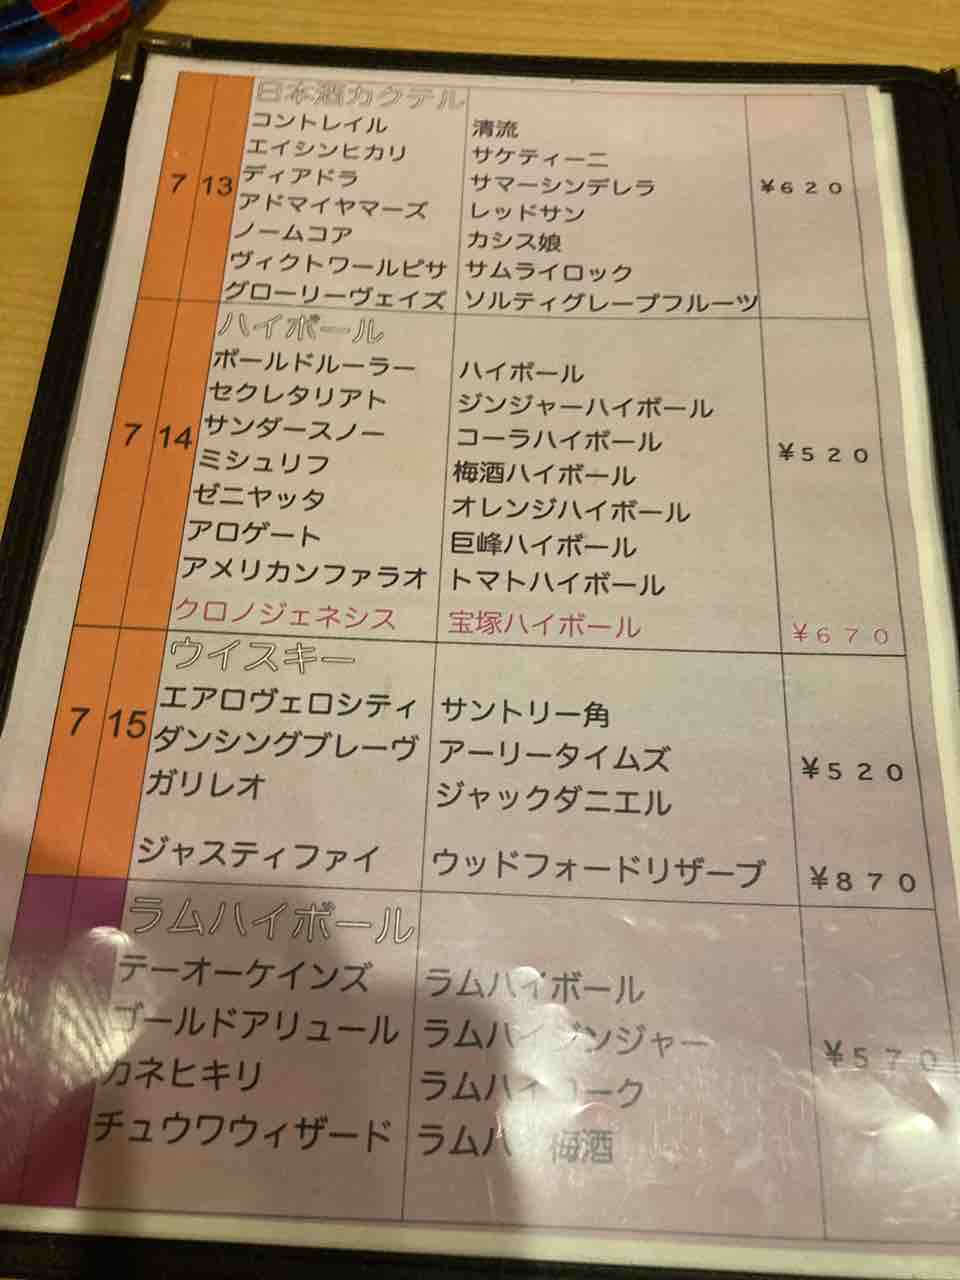 日本酒カクテル
7 13
コントレイル 清流
エイシンヒカリ サケティーニ
ディアドラ サマーシンデレラ ¥620
アドマイヤマーズ レッドサン
ノームコア カシス娘
ヴィクトワールピサ サムライロック
グローリーヴェイズ ソルティグレープフルーツ
ハイボール
7 14
ボールドルーラー ハイボール
セクレタリアト ジンジャーハイボール
サンダースノー コーラハイボール ¥520
ミシュリフ 梅酒ハイボール
ゼニヤッタ オレンジハイボール
アロゲート 巨峰ハイボール
アメリカンファラオ トマトハイボール
クロノジェネシス 宝塚ハイボール ¥670
ウイスキー
7 15
エアロヴェロシティ サントリー角
ダンシングブレーヴ アーリータイムズ ¥520
ガリレオ ジャックダニエル
ジャスティファイ ウッドフォードリザーブ ¥870
ラムハイボール
テーオーケインズ ラムハイボール
ゴールドアリュール ラムハイジンジャー ¥570
カネヒキリ ラムハイコーク
チュウワウィザード ラムハイ梅酒